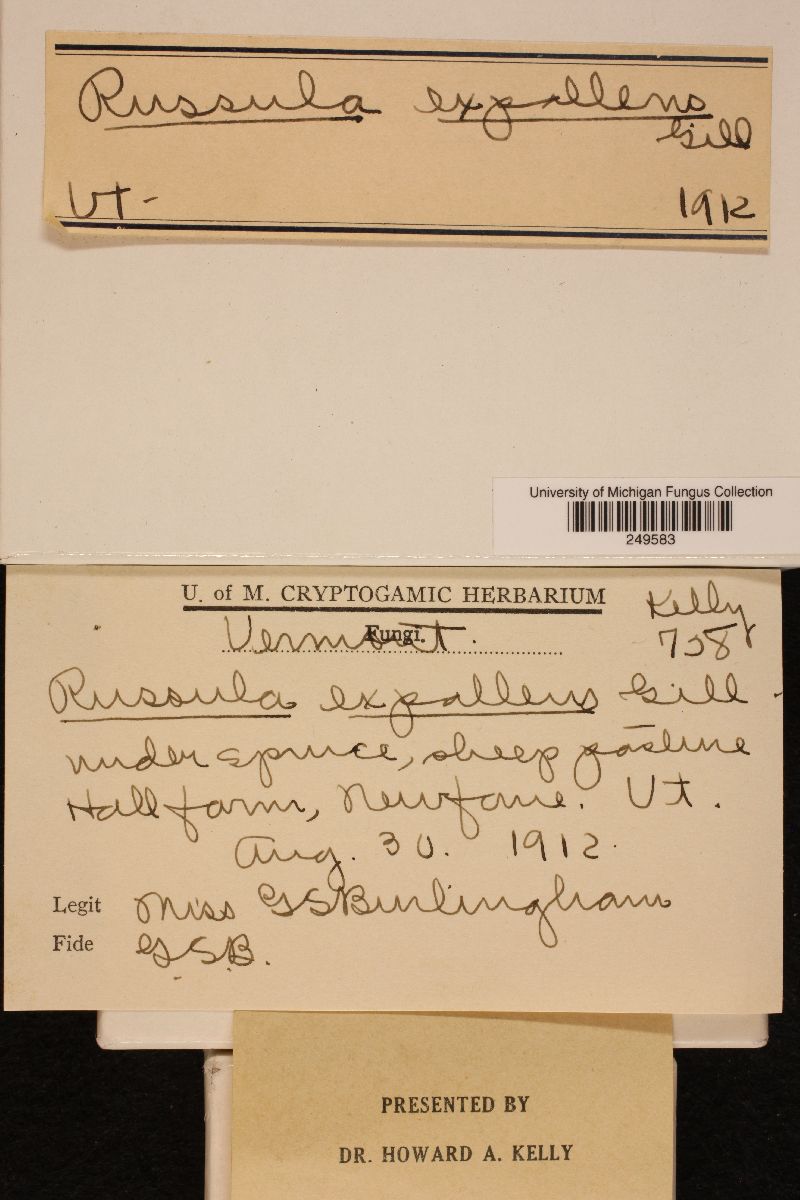 Russula expallens
Gill
Vt - 1912
University of Michigan Fungus Collection
249583
U. of M. CRYPTOGAMIC HERBARIUM
Kelly
Fungi.
Vermont.
728
Russula expallens Gill.
under spruce, sheep pasture
Hall farm, Newfane. Vt.
Aug. 30. 1912.
Legit Miss G S Burlingham
Fide G.S.B.
PRESENTED BY
DR. HOWARD A. KELLY